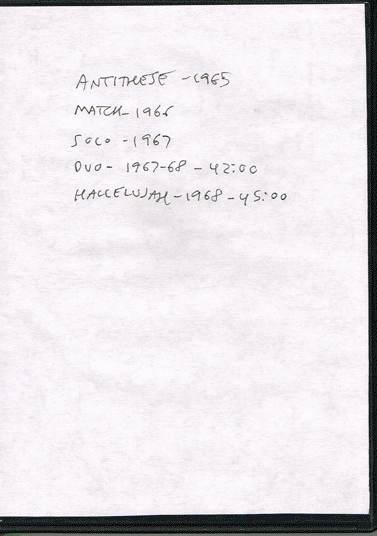 ANTITHESE - 1965
MATCH - 1966
SOLO - 1967
DUO - 1967-68 - 42:00
HALLELUJAH - 1968 - 45:00